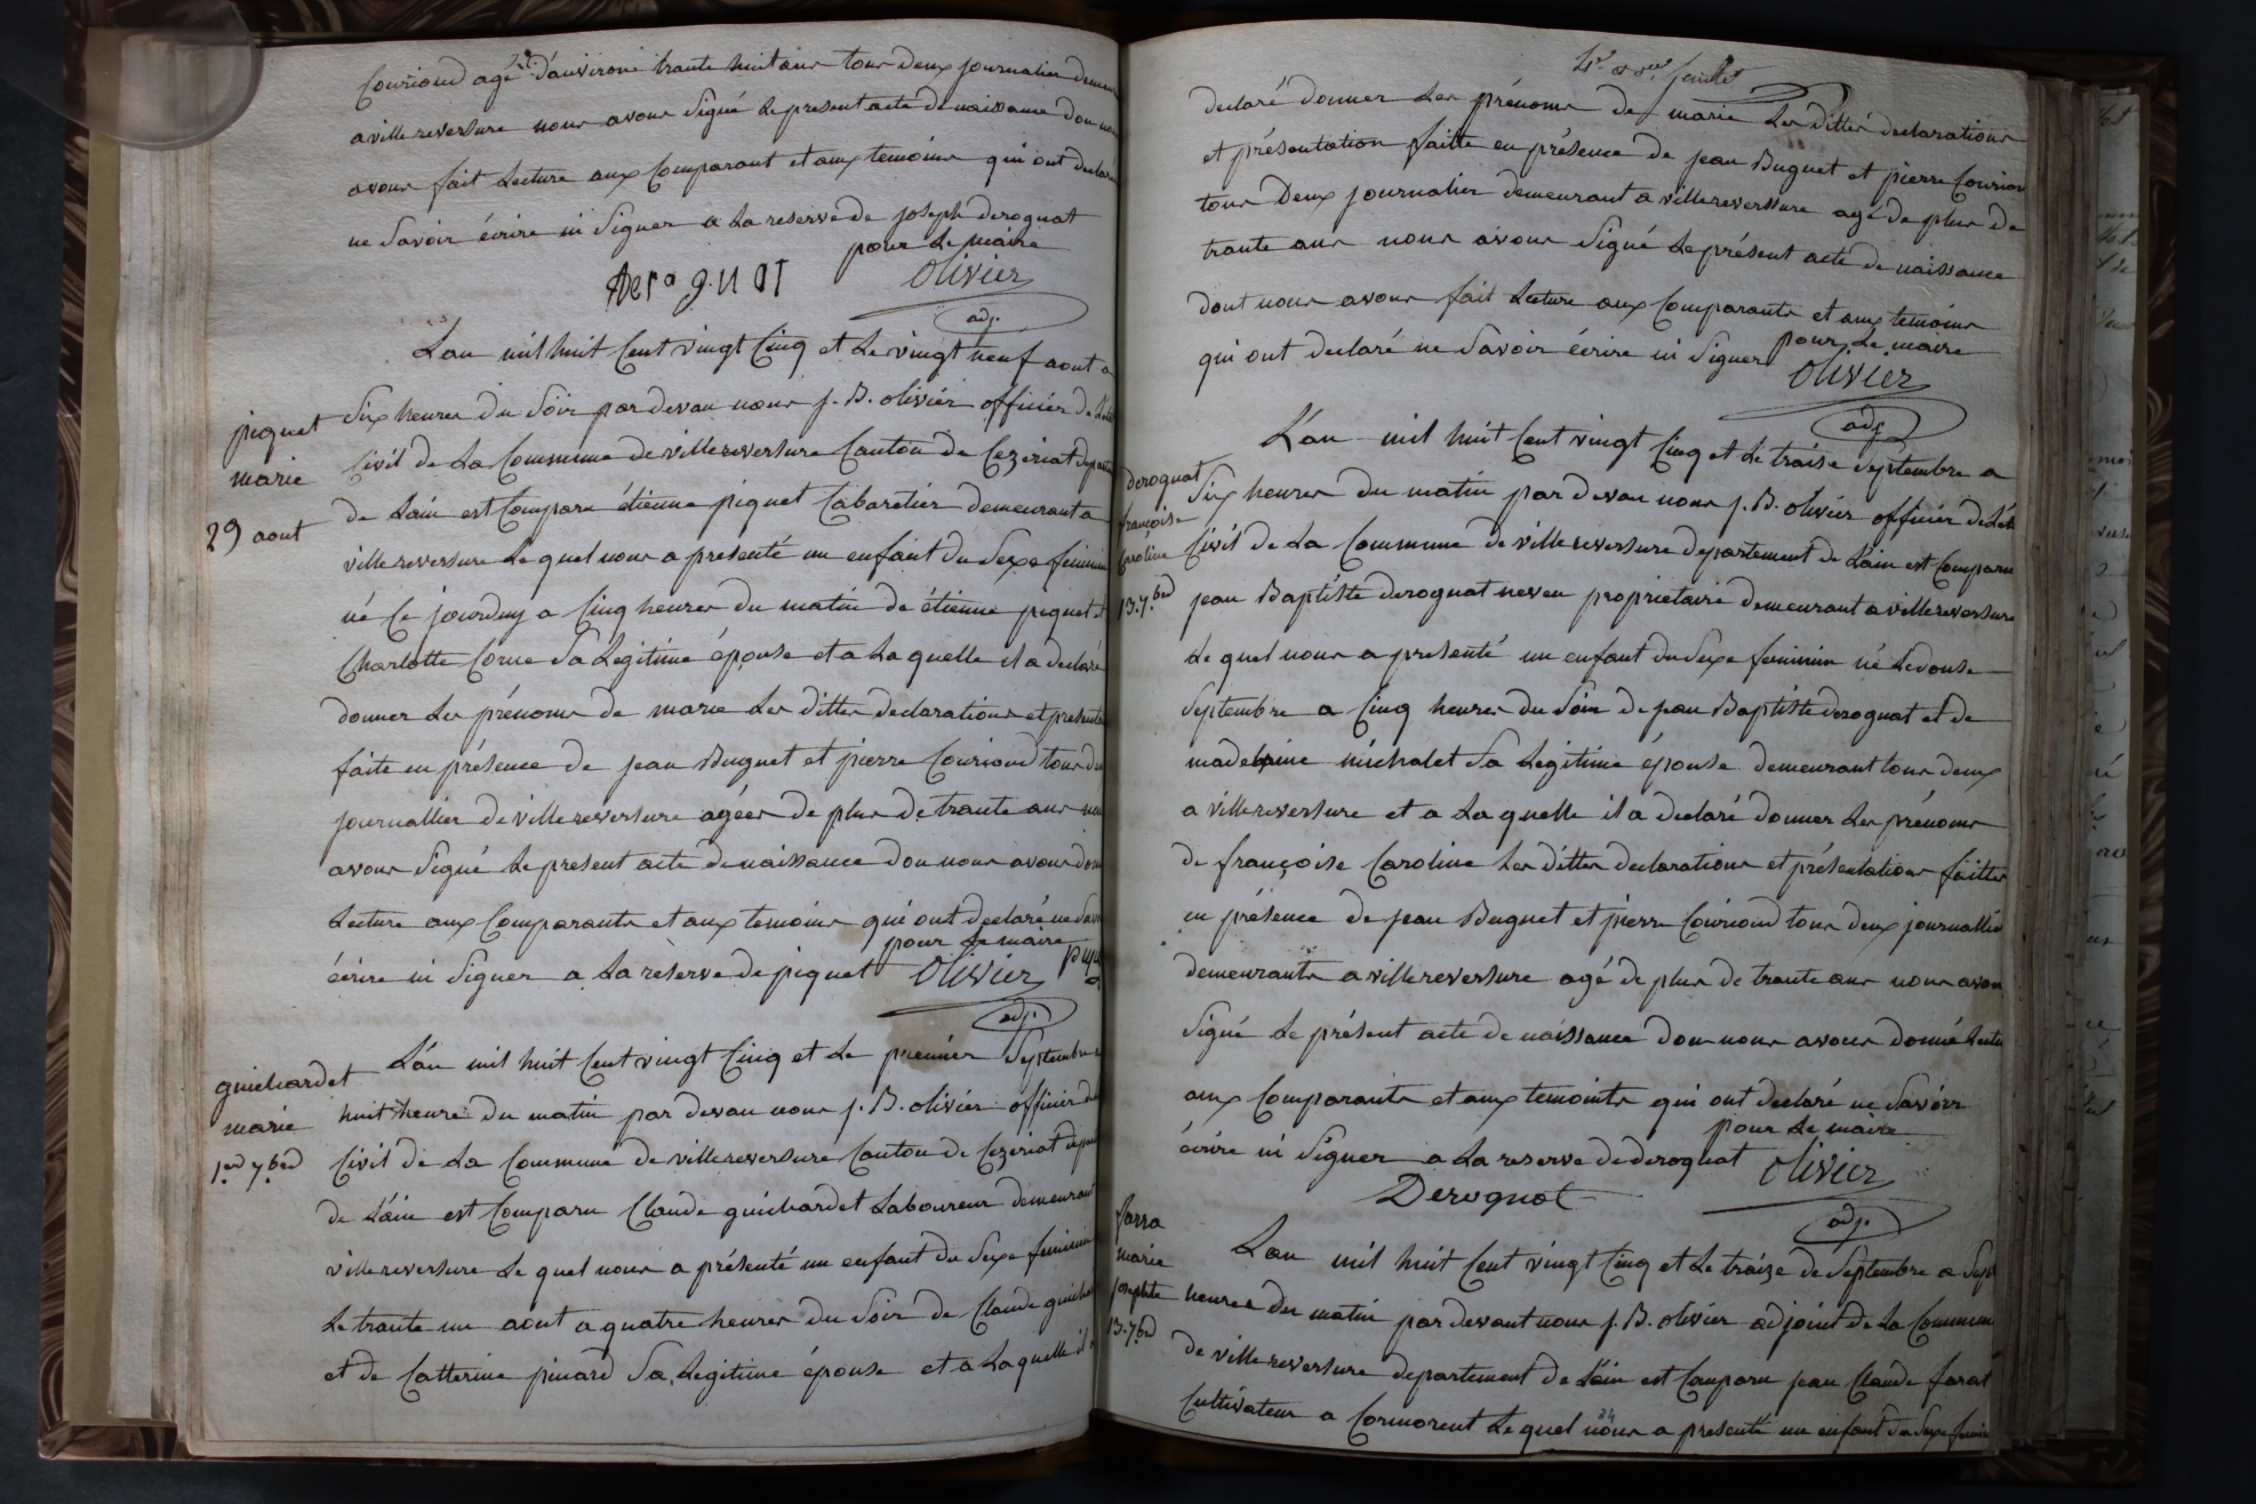 Couriond agé d'anvirons trante huit ans tous deux journalier demeu
a villereversure nous avons signé le present acte de naissance don nous
avons fait lecture aux Comparant et aux temoins qui ont declaré
ne savoir écrire ni signer a la reserve de joseph derognat
pour le maire
derognat
olivier
adj.
Lan mil huit Cent vingt Cinq et le vingt neuf aout a
piquet
marie
29 aout
six heures du soir par devan nous j. B. olivier officier de L'état
Civil de la Commune de villereversure Canton de Cezeriat depar
de Lain est Comparu étienne piquet Cabaretier demeurant a
villereversure le quel nous a presenté un enfant du sexe feminin
né Ce jourduy a Cinq heures du matin de étienne piquet et
Charlotte Corne sa legitime épouse et a la quelle il a declaré
donner les prénoms de marie les dittes declarations et presenta
faite en présence de jean Buguet et pierre Couriond tous de
journallier de villereversure agées de plus de trante ans nous
avons signé le present acte de naissance don nous avons don
lecture aux Comparants et aux temoins qui ont declaré ne sav
écrire ni signer a la reserve de piquet
pour le maire
olivier
adj.
guichardet
marie
1er 7bre
L'an mil huit Cent vingt Cinq et le premier septembre a
huit heure du matin par devan nous j. B. olivier officier de
Civil de la Commune de villereversure Canton de Cezeriat depar
de L'ain est Comparu Claude guichardet Laboureur demeurant
villereversure le quel nous a présenté un enfant du sexe feminin
le trante un aout a quatre heures du soir de Claude guichar
et de Catterine pinard sa legitime épouse et a la quelle il
feuillet
declaré donner les prénoms de marie les dittes declarations
et présentation faitte en présence de jean Buguet et pierre Courion
tous Deux journalier demeurant a villereversure agé de plus de
trante ans nous avons signé le présent acte de naissance
dont nous avons fait lecture aux Comparants et aux temoins
qui ont declaré ne savoir écrire ni signer
pour le maire
olivier
adj.
derognat
françoise
Caroline
13. 7bre
L'an mil huit Cent vingt Cinq et le traise septembre a
six heures du matin par devan nous j. B. olivier officier de L'ét
Civil de la Commune de villereversure departement de L'ain est Comparu
jean Baptiste derognat neveu proprietaire demeurant a villereversure
le quel nous a presenté un enfant du sexe feminin né le douse
septembre a Cinq heures du soir de jean Baptiste derognat et de
madelaine michalet sa legitime épouse demeurant tous deux
a villereversure et a la quelle il a declaré donner les prénoms
de françoise Caroline les dittes declarations et présentations faittes
en présence de jean Buguet et pierre Couriond tous deux journallié
demeurants a villereversure agé de plus de trante ans nous avon
signé le présent acte de naissance don nous avons donné lectu
aux Comparants et aux temoints qui ont declaré ne savoir
écrire ni signer a la reserve de derognat
pour le maire
Derognat
olivier
adj.
farra
marie
josephte
13. 7bre
Lan mil huit Cent vingt Cinq et le traize de septembre a sept
heures du matin par devant nous j. B. olivier adjoint de la Commun
de villereversure departement de Lain est Comparu jean Claude farat
Cultivateur a Cormorent le quel nous a presenté un enfant du sexe femin
24